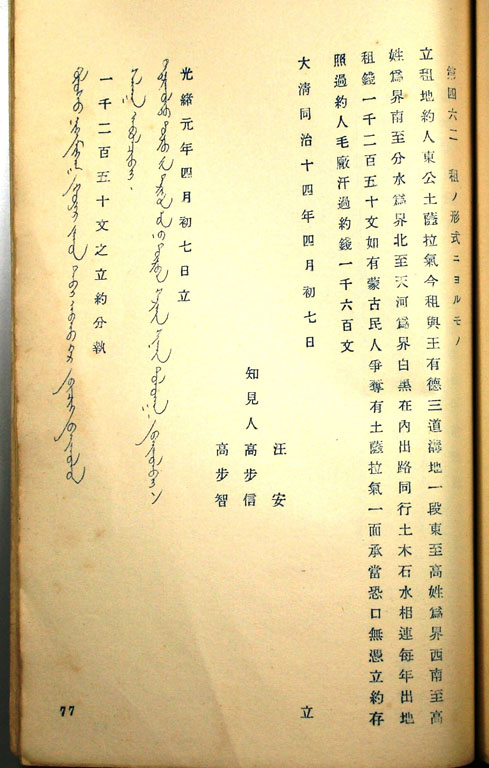 第四六二 租ノ形式ニヨルモノ
立租地約人東公土薩拉氣今租與王有德三道溝地一段東至高姓爲界西南至高
姓爲界南至分水爲界北至天河爲界白黑在內出路同行土木石水相連每年出地
租錢一千二百五十文如有蒙古民人爭奪有土薩拉氣一面承當恐口無憑立約存
照過約人毛廠汗過約錢一千六百文
大淸同治十四年四月初七日 立
汪安
知見人高步信
高步智
光緖元年四月初七日立
一千二百五十文之立約分執
77